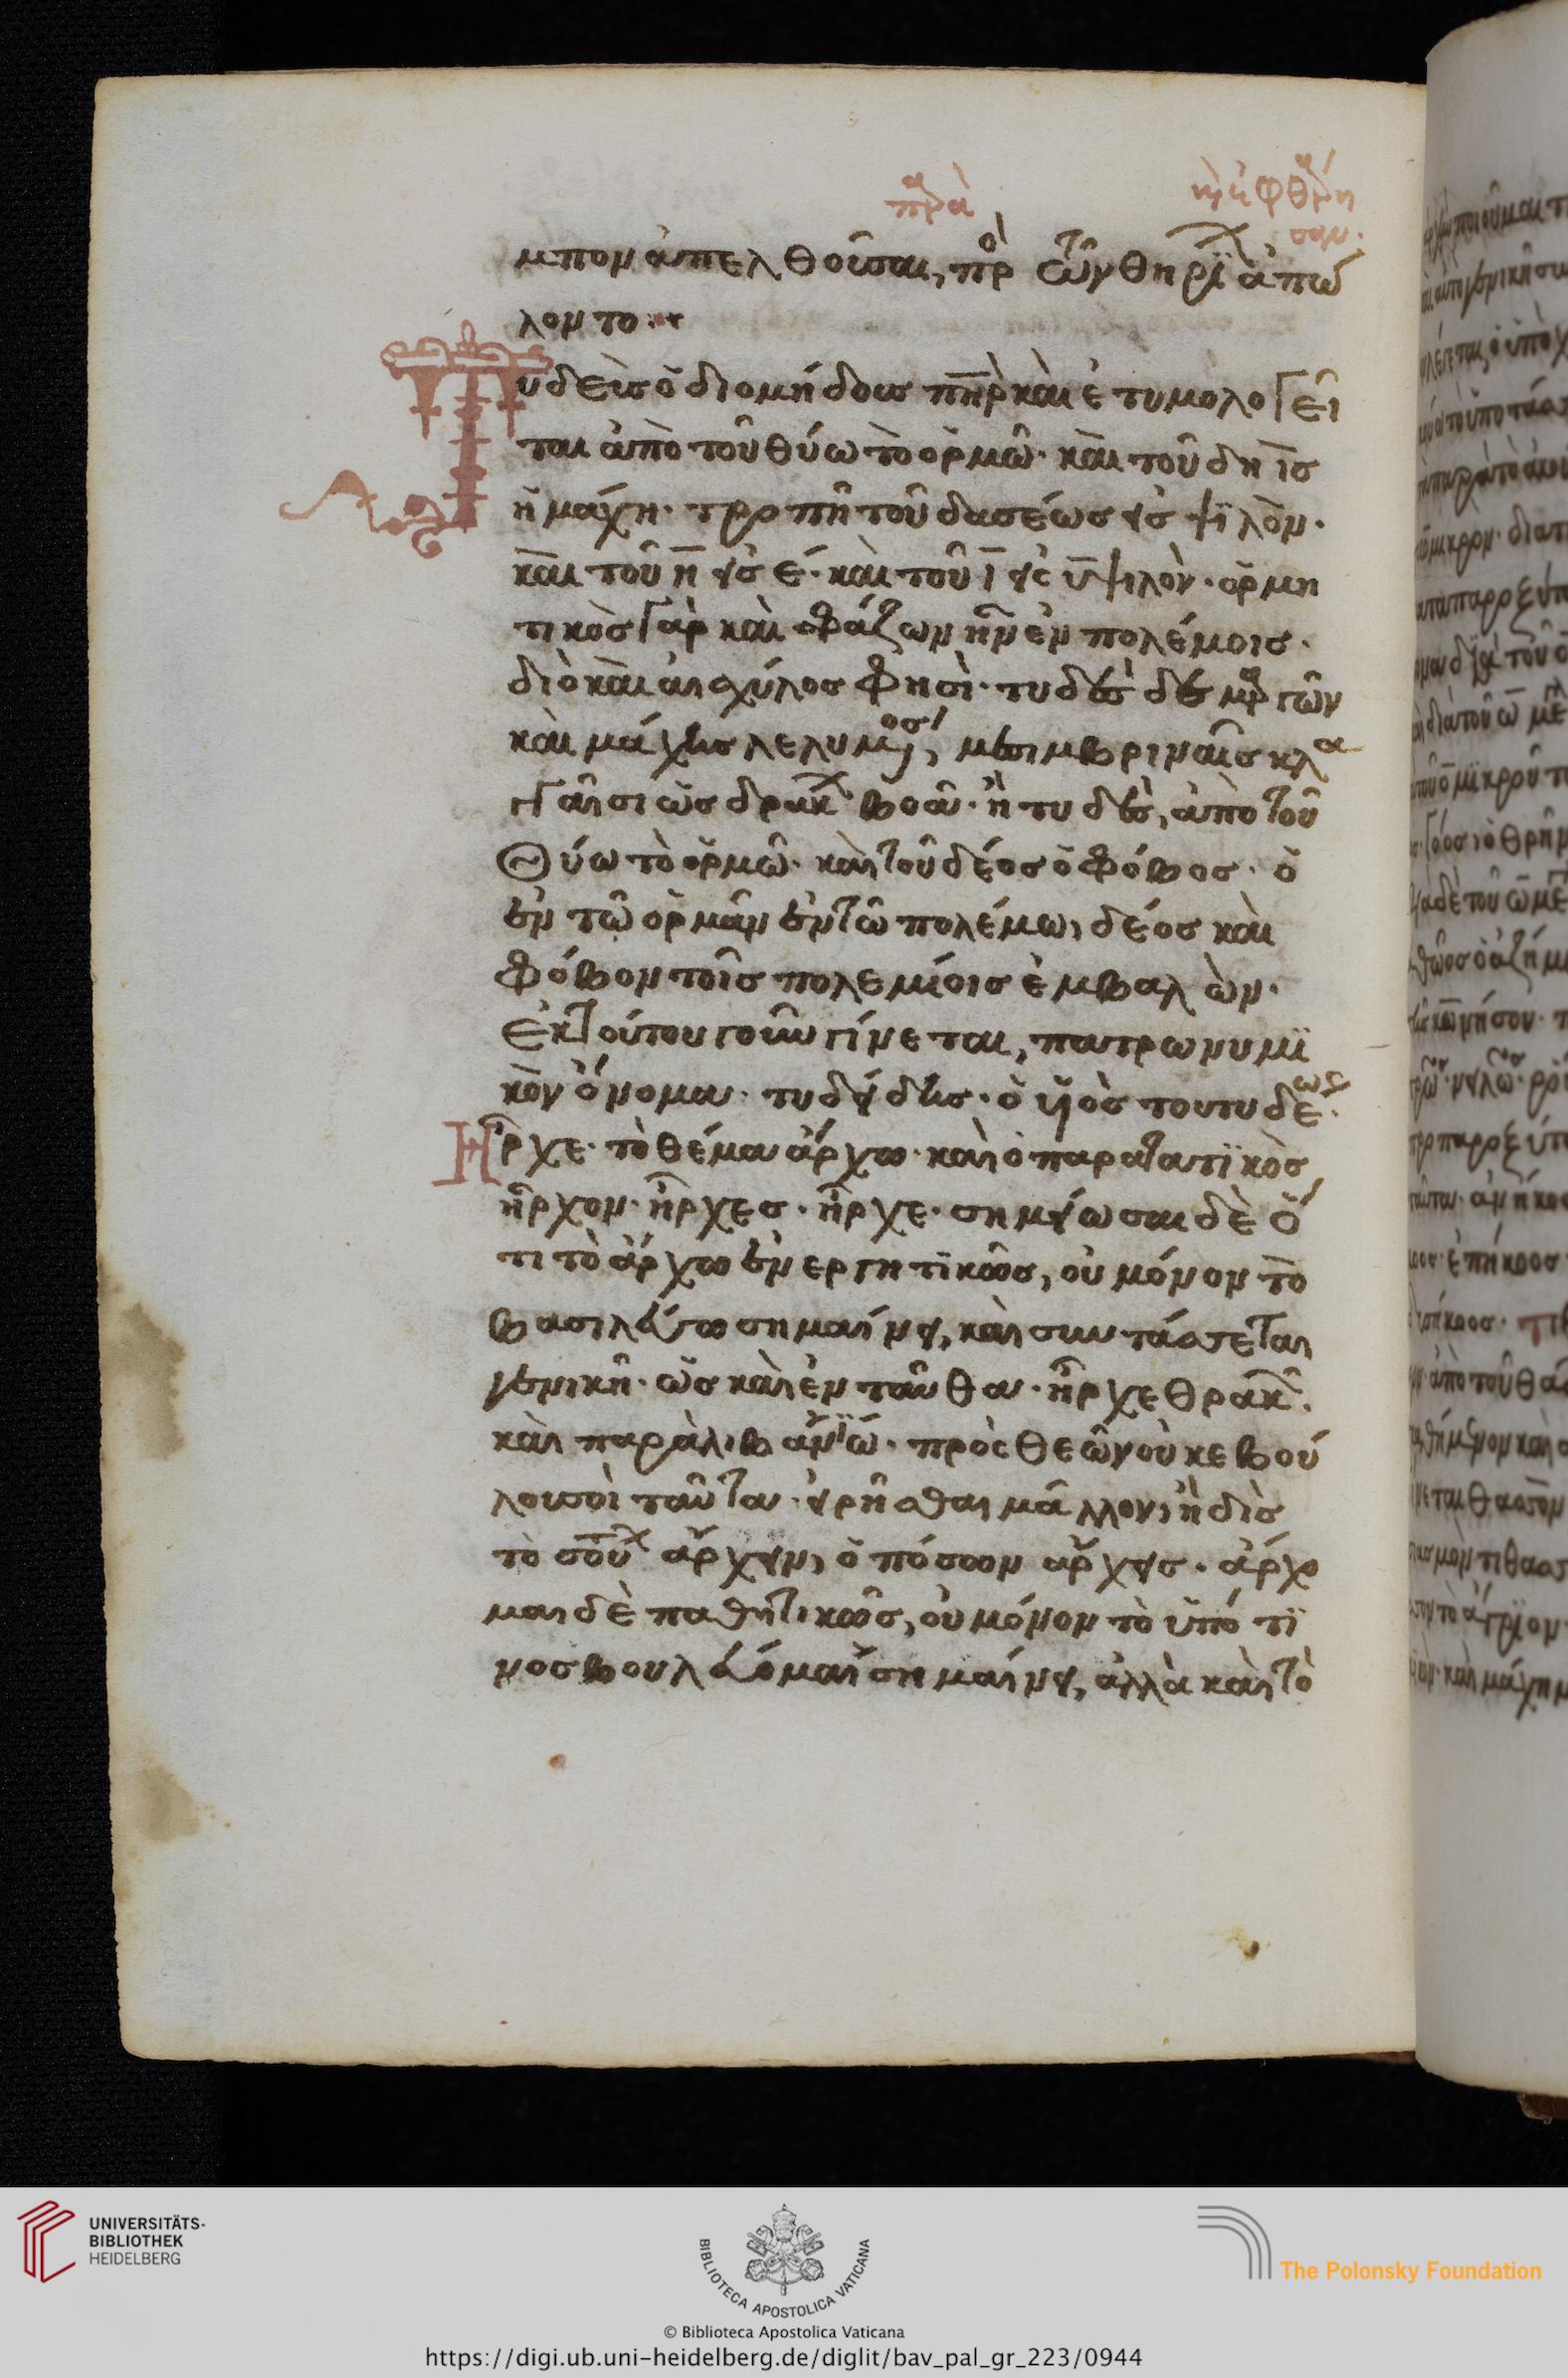 πρα
κ ἐφθρη
σαν.
μπον ἀπελθοῦσαι, πρ τῶν θηρί ἀπώ
λοντο.
Τυδεὺς ὁ διομήδους πηρ καὶ ἐτυμολογεῖ
ται ἀπὸ τοῦ θύω τὸ ὁρμῶ· καὶ τοῦ δηϊσ
ἡ μάχη· τροπῆ τοῦ δασέως εἰς ψϊλὸν·
καὶ τοῦ η εἰς ε· καὶ τοῦ ι εἰς υψιλὸν· ὁρμη
τικὸς γὰρ καὶ σφάζων ἦν ἐν πολέμοις·
διὸ καὶ αισχύλος φησὶ· τυδεὺς δὲ μαργῶν
καὶ μάχης λελυμμένος, μεσιμβριναῖς κλα
γγαῖσι ὡς δρακ βοᾶ· ἢ τυδεὺς, ἀπὸ τοῦ
Θύω τὸ ὁρμῶ· καὶ τοῦ δέος ὁ φόβος· ὁ
ἐν τῶ ὁρμᾶν ἐν τῶ πολέμω, δέος καὶ
φόβον τοῖς πολεμίοις ἐμβαλὼν·
Ἐκ τούτου γοῦν γίνεται, πατρωνυμϊ
κὸν ὄνομα· τυδείδης· ὁ υἱὸς του τυδέως·
Ἦρχε· τὸ θέμα ἄρχω· καὶ ὁ παρατατϊκὸς
ἦρχον· ἦρχες· ἦρχε· σημείωσαι δὲ ὅ
τι τὸ ἄρχω ἐνεργητϊκῶς, οὐ μόνον τὸ
βασιλεύω σημαίνει, καὶ συντάσσεται
γενικῆ· ὡς καὶ ἐνταῦθα· ἦρχε θρακ.
καὶ παρὰ λιβανΐω· πρὸς θεῶν οὐκ ἐβού
λου σοὶ ταῦτα εἰρῆσθαι μᾶλλον, ἢ δὶς
τὸ σοῦ ἄρχειν, ὁπόσων ἄρχεις· ἄρχο
μαι δὲ παθητικῶς, οὐ μόνον τὸ ὑπό τϊ
νος βουλεύομαι σημαίνει, ἀλλὰ καὶ τὸ
UNIVERSITÄTS-
BIBLIOTHEK
HEIDELBERG
BIBLIOTECA APOSTOLICA VATICANA
The Polonsky Foundation
© Biblioteca Apostolica Vaticana
https://digi.ub.uni-heidelberg.de/diglit/bav_pal_gr_223/0944